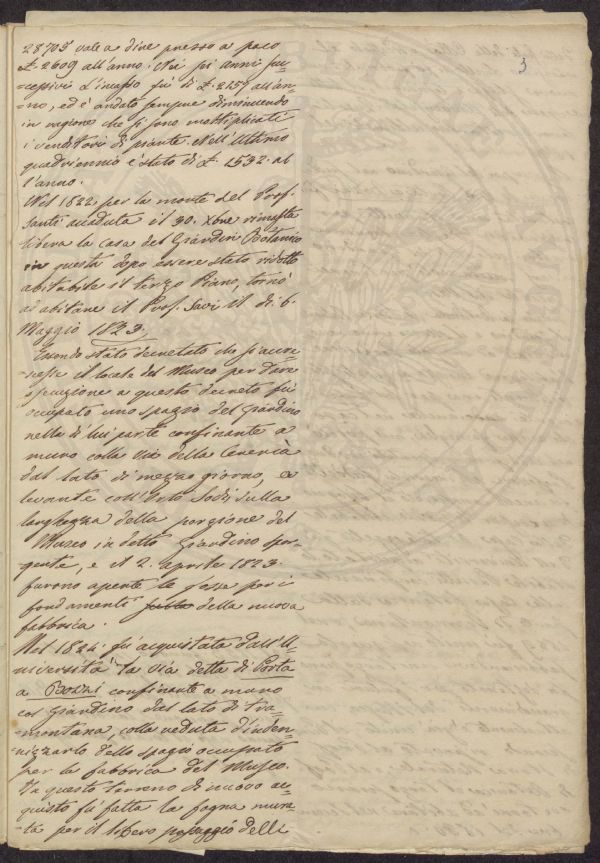 3
28705 vale a dire presso a poco
£. 2609 all'anno. Nei sei anni suc=
=cessivi l'incasso fù di £. 2157 all'an=
=no, ed è andato sempre diminuendo
in ragione che si sono moltiplicati
i venditori di piante. Nell'Ultimo
quadriennio è stato di £. 1532. al
l'anno.
Nel 1822. per la morte del Prof.
Santi accaduta il 30. Xbre rimasta
libera la casa del Giardin Botanico
in questa dopo essere stato ridotto
abitabile il terzo Piano, tornò
ad abitare il Prof. Savi il dì. 6.
Maggio 1823.
Essendo stato decretato che si accre=
=scesse il locale del Museo per dare
esecuzione a questo decreto fù
occupato uno spazio del Giardino
nella di lui parte confinante a
muro colla via della
dal lato di mezzo giorno, e a
levante coll'Orto Sodi sulla
larghezza della porzione del
Museo in detto Giardino spor=
gente, e il 2. aprile 1823.
furono aperte le fosse per i
fondamenti della nuova
fabbrica.
Nel 1824. fù acquistata dall'U=
niversità la via detta di Porta
a Bozzi confinante a muro
col Giardino dal lato di tra=
=montana, colla veduta d'inden=
=nizzarlo dello spazio occupato
per la fabbrica del Museo.
In questo terreno di nuovo ac=
quisto fù fatta la fogna mura=
=ta per il libero passaggio delli